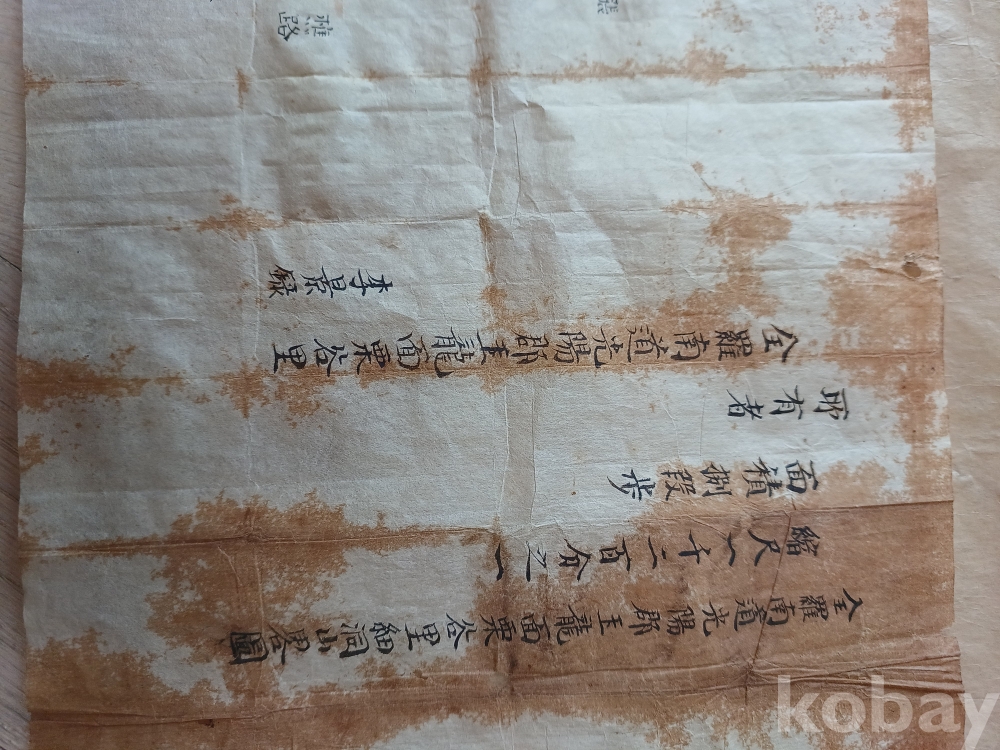 全羅南道光陽郡玉龍面栗谷里細洞山畧圖
縮尺一千二百分之一
面積捌段步
所有者
全羅南道光陽郡玉龍面栗谷里
李景録
kobay